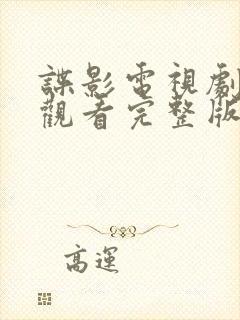 諜影電視劇
觀看完整版
高運